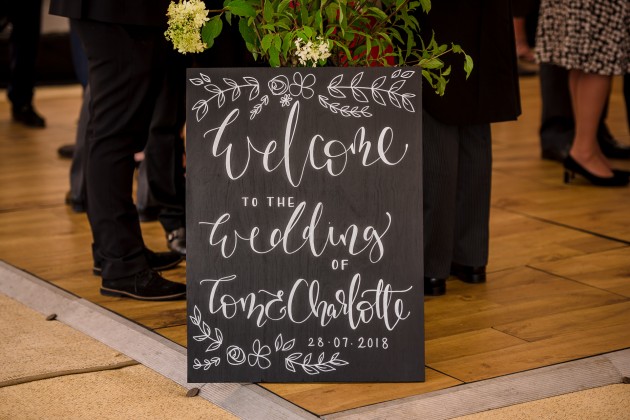 Welcome
TO THE
Wedding
OF
Tom & Charlotte
28·07·2018